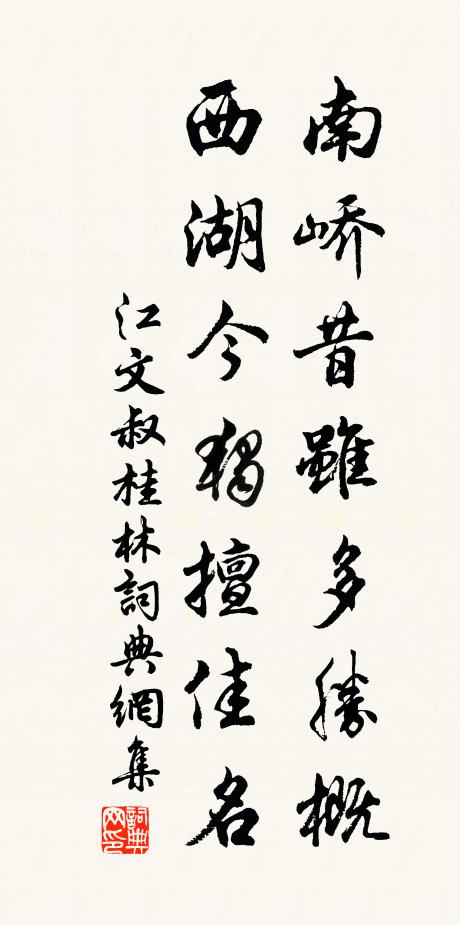 南嶠昔雖多勝概
西湖今獨擅佳名
江文叔桂林詞典網集
詞典网印